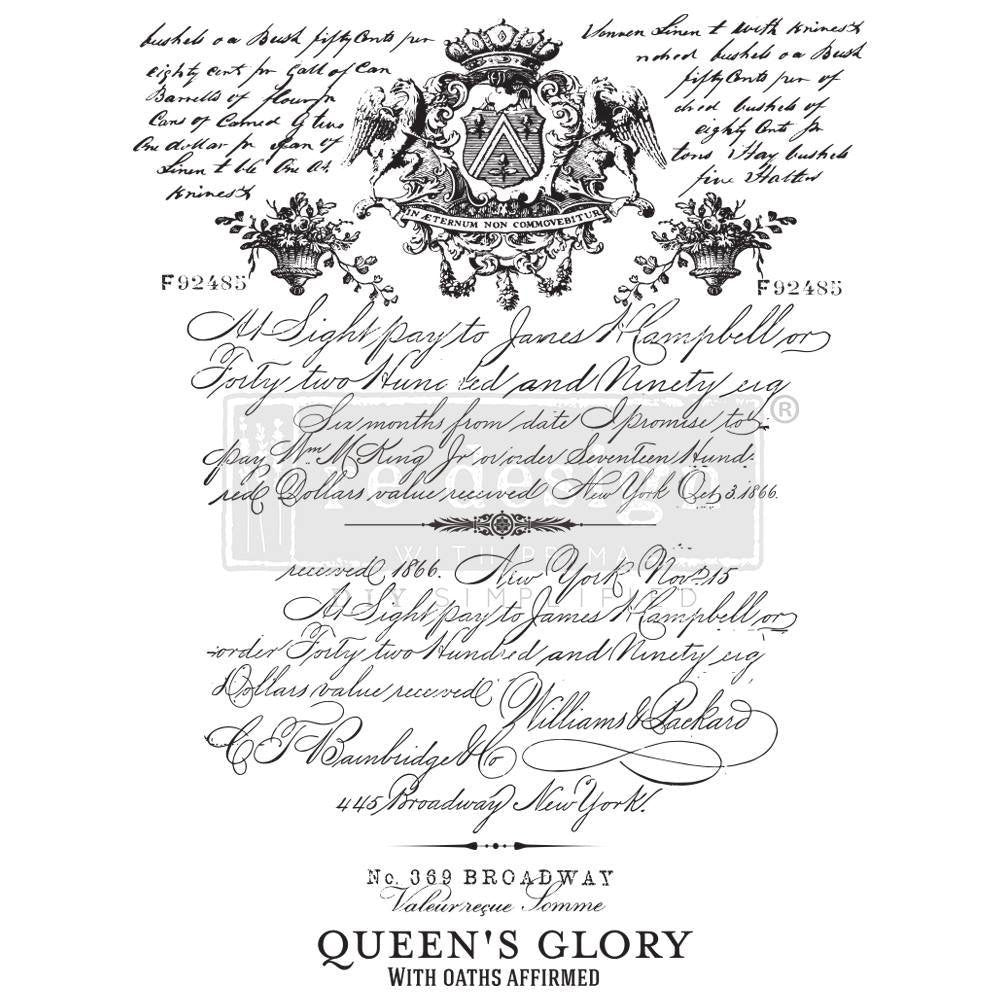 bushels oa Bush fifty Cents per
eighty cent pr Gall of Can
Barrells of flour pr
Cans of Carned G two
One dollar pr of
Linen t ble One At
Knines t
Linen t with Knines t
bushels oa Bush
fifty Cents per of
dred bushels of
eighty Cents pr
tons Hay bushels
five Halter
IN ÆTERNUM NON COMMOVEBITUR
F92485
F92485
At Sight pay to James H Campbell or
Forty two Hundred and Ninety eig
Six months from date I promise to
pay Wm McKing Jr or order Seventeen Hund-
red Dollars value received New York Oct 3. 1866.
re·design®
WITH PRIMA
DIY SIMPLIFIED
received 1866. New York Nov. 15
At Sight pay to James H Campbell or
order Forty two Hundred and Ninety eig
Dollars value received
Williams & Packard
C T Bainbridge & Co
445 Broadway New York.
No. 369 BROADWAY
Valeur reçue Somme
QUEEN'S GLORY
WITH OATHS AFFIRMED